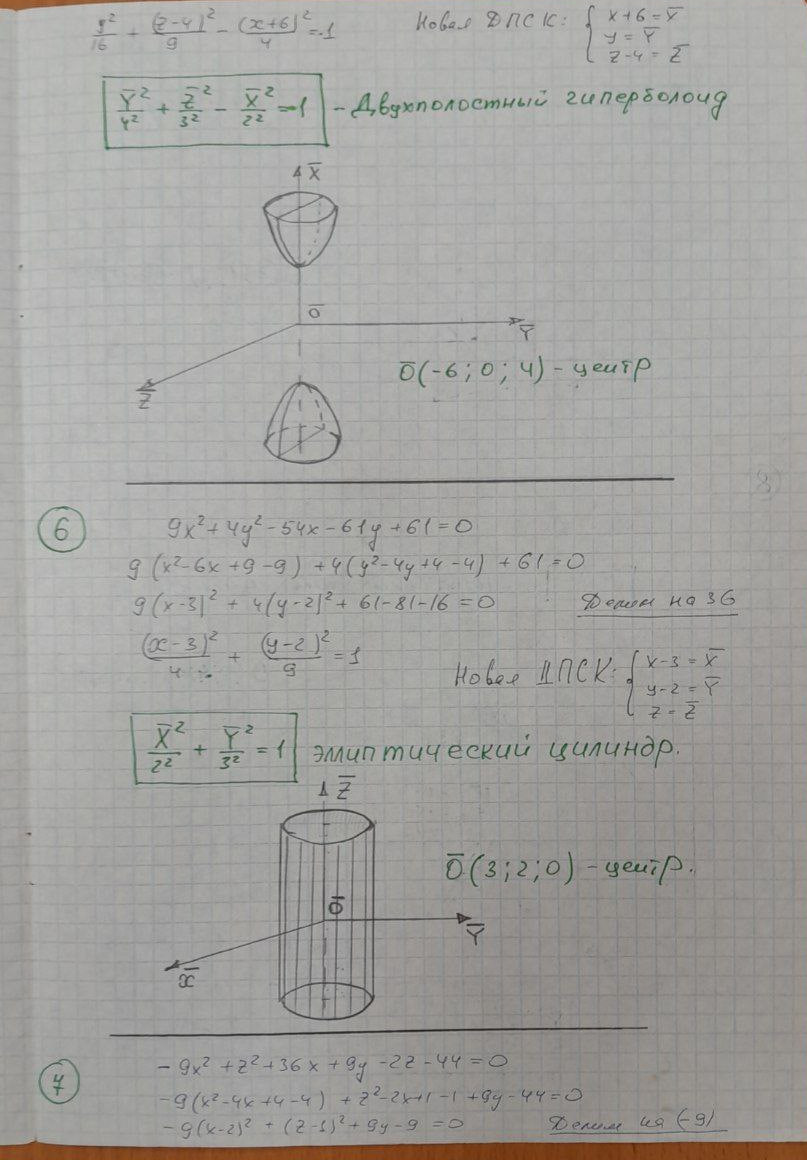 y²/16 + (z-4)²/9 - (x+6)²/4 = -1 Новая ДПСК: { x+6 = X̅
y = Y̅
z-4 = Z̅
Y̅²/4² + Z̅²/3² - X̅²/2² = -1 - Двухполостный гиперболоид
X̅
O̅
Y̅
O̅(-6; 0; 4) - центр
Z̅
6 9x²+4y²-54x-61y+61=0
9(x²-6x+9-9) +4(y²-4y+4-4) +61=0
9(x-3)² + 4(y-2)² + 61-81-16=0 Делим на 36
(x-3)²/4 + (y-2)²/9 = 1
Новая ДПСК: { x-3 = X̅
y-2 = Y̅
z = Z̅
X̅²/2² + Y̅²/3² = 1 элиптический цилиндр.
Z̅
O̅(3; 2; 0) - центр.
O̅
Y̅
X̅
7 -9x²+z²+36x+9y-2z-44=0
-9(x²-4x+4-4) + z²-2x+1-1+9y-44=0
-9(x-2)² + (z-1)²+9y-9=0 Делим на (-9)